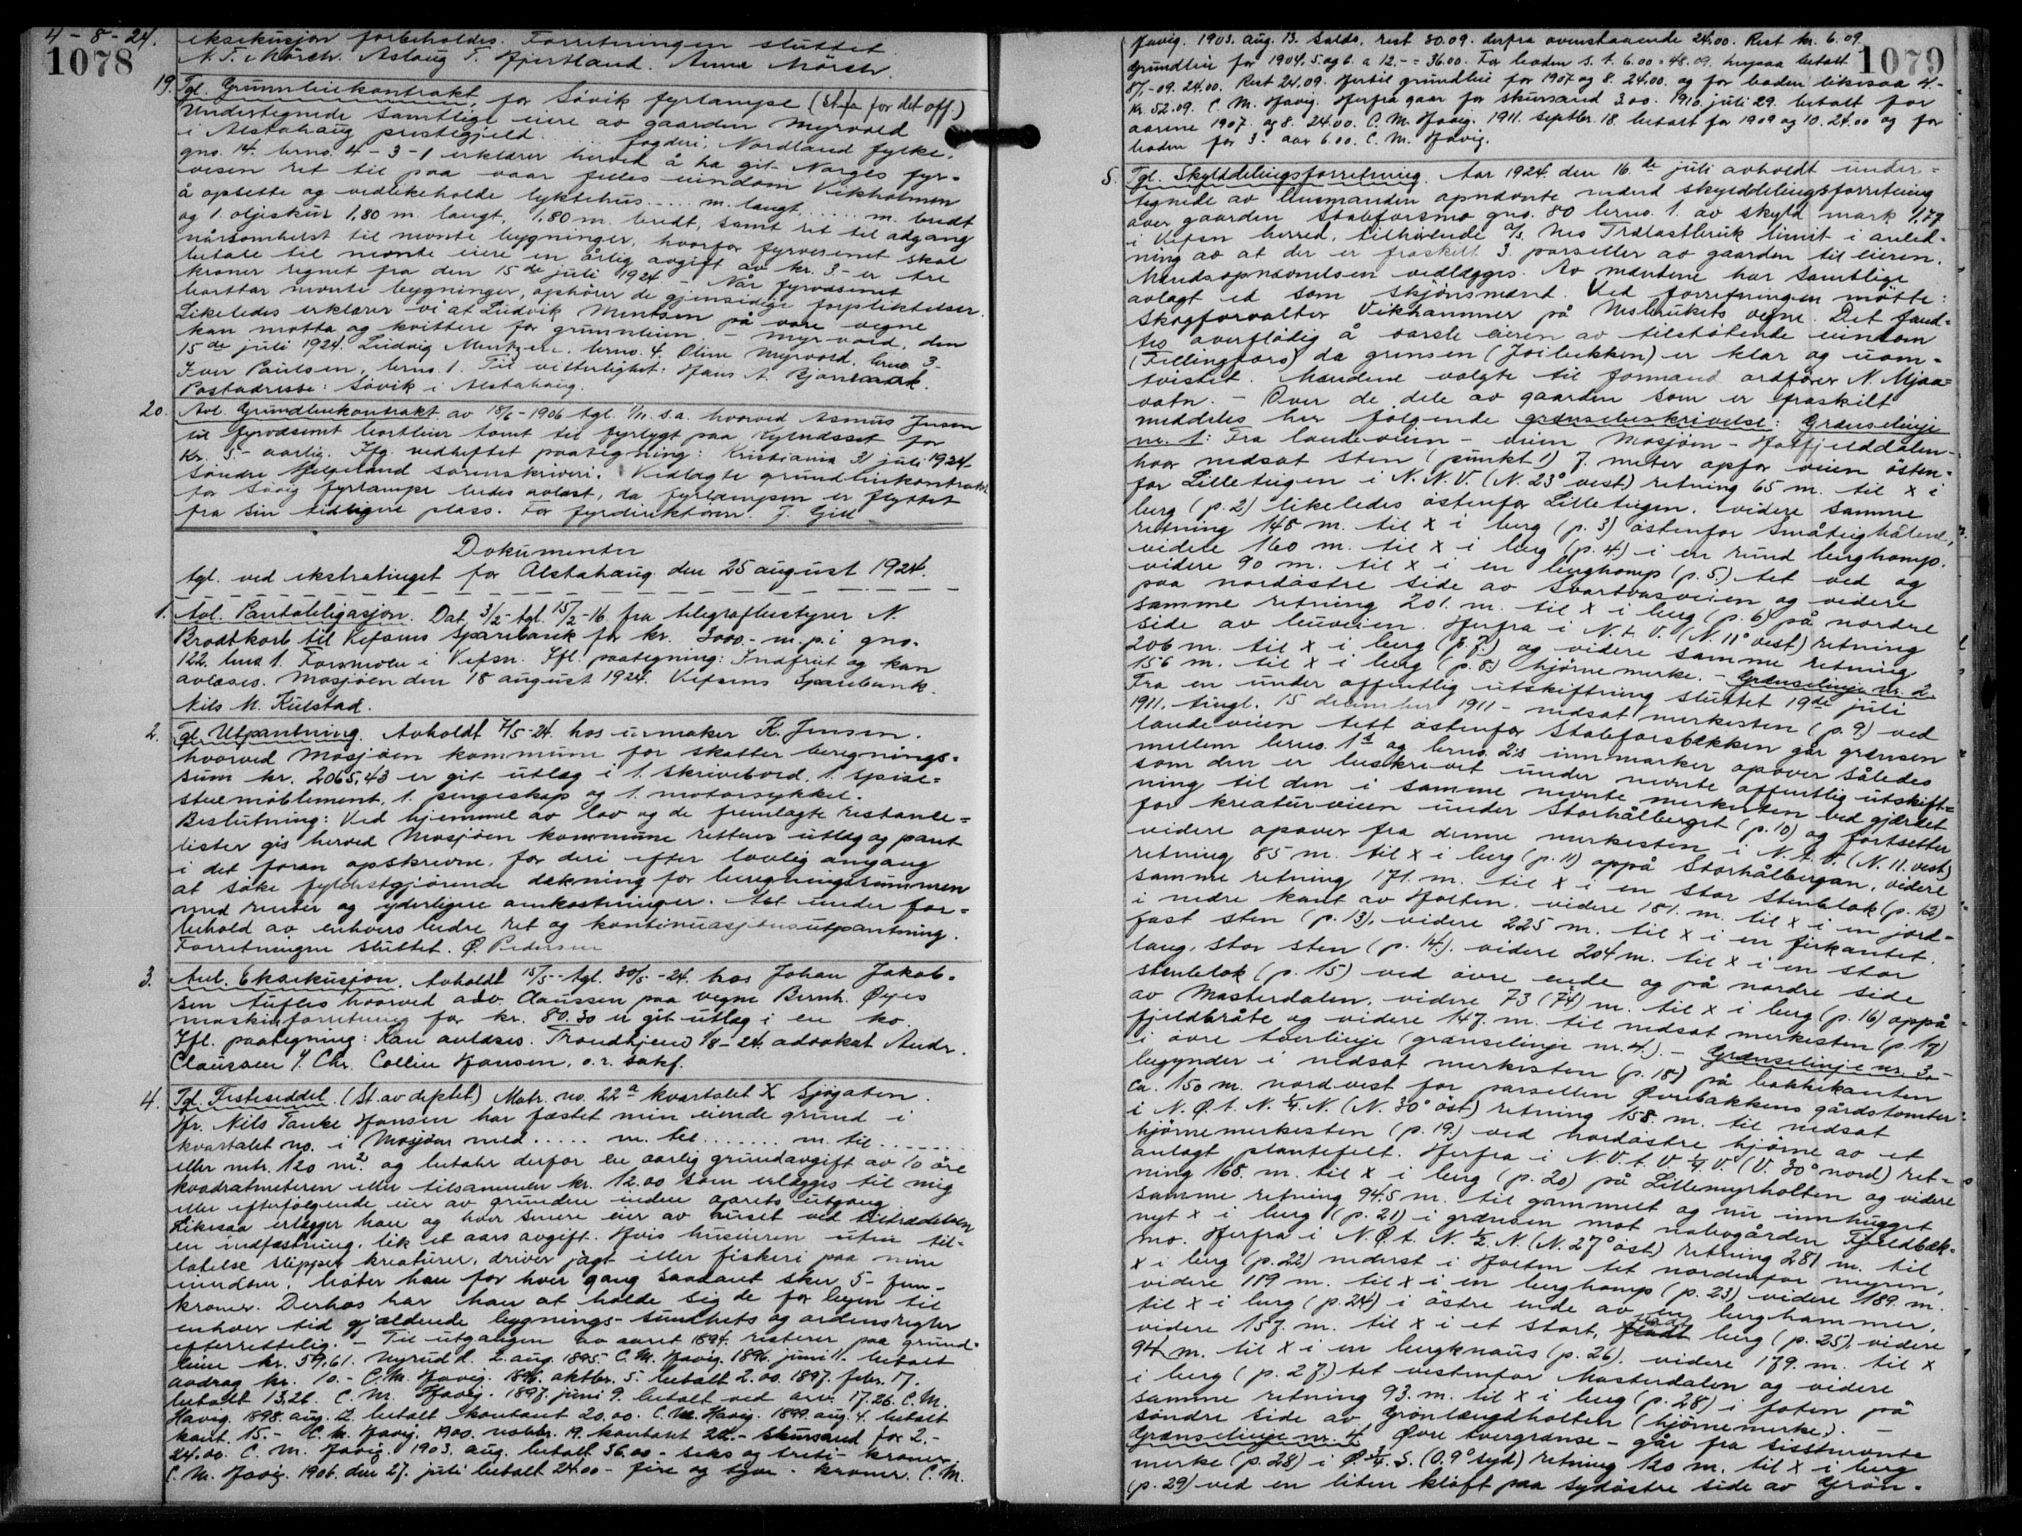 4-8-24.
1078
eksekusjon forbeholdes. Forretningen sluttet.
N. T. Mörch. Aslaug T. Hjertland. Anna Mörch.
19. Tgl. Grunnleiekontrakt, for Søvik fyrlampe (st.fr. for det off.)
Undertegnede samtlige eiere av gaarden Myrvold
i Alstahaug prestegjeld ..... fogderi, Nordland fylke,
gno. 14. brno. 4-3-1 erklærer herved å ha git Norges fyr-
vesen ret til paa vaar felles eiendom Vikholmen
å opsette og vedlikeholde lyktehus .... m. langt, ..... m. bredt
og 1. oljeskur 1,80 m. langt, 1,80 m. bredt, samt ret til adgang
nårsomhelst til nevnte bygninger, hvorfor fyrvesenet skal
betale til nevnte eiere en årlig avgift av kr. 3- er tre
kroner regnet fra den 15de juli 1924. - Når fyrvæsenet
borttar nevnte bygninger, ophører de gjensidige forpliktelser.
Likeledes erklærer vi at Ludvik Mentsen på vore vegne
kan motta og kvittere for grunnleien. - Myrvold, den
15de juli 1924. Ludvig Mentzen. brno. 4. Oline Myrvold, brno 3.
Iver Paulsen, brno. 1. Til vitterlighet: Hans A. Bjørnaak.
Postadresse: Søvik i Alstahaug.
20. Avl. Grundleiekontrakt av 18/6-1906 tgl. 1/11 s.a. hvorved Asmus Jensen
til fyrvæsenet bortleier tomt til fyrlygt paa Kylndsset for
kr. 5- aarlig. Ifg. vedheftet paategning: Kristiania 31 juli 1924
Søndre Helgeland sorenskriveri. Vedlagte grundleiekontrakt
for Søvig fyrlampe bedes avlæst, da fyrlampen er flyttet
fra sin tidligere plass. For fyrdirektøren. J. Gill
Dokumenter
tgl. ved ekstratinget for Alstahaug den 25 august 1924.
1. Avl. Pantobligasjon. Dat. 3/2- tgl. 15/2-16 fra telegrafbestyrer N.
Brodtkorb til Vefsens Sparebank for kr. 3000.- m. p. i gno.
122. brno 1. Forsmoen i Vefsn. Ifl. paategning: Indfriet og kan
avlæses. Mosjøen den 18 august 1924. Vefsens Sparebank.
Nils M. Kulstad.
2. Tgl. Utpantning. Avholdt 7/5-24. hos urmaker K. Jensen.
hvorved Mosjøen kommune for skatter beregnings-
sum kr. 2065,43 er git utlæg i 1. skrivebord, 1. spise-
stuemöblement, 1. pengeskap og 1. motorsykkel.
Beslutning: Ved hjemmel av lov og de fremlagte restanse-
lister gis herved Mosjøen kommune rettens utlæg og pant
i det foran opskrevne, for deri efter lovlig omgang
at söke fyldestgjørende dekning for beregningssummen
med renter og yderligere omkostninger. Alt under for-
behold av enhvers bedre ret og kontinuasjonsutpantning.
Forretningen sluttet. Ø. Pedersen
3. Avl. Eksekusjon. Avholdt 15/5- tgl. 30/5-24. hos Johan Jakob-
sen Aufles hvorved adv. Claussen paa vegne Bernh. Øyes
maskinforretning for kr. 80.30 er git utlæg i en ko.
Ifl. paategning: Kan avlæses. Trondhjem 1/8-24. advokat Andr.
Claussen f. Chr. Collin Hansen, o.r. sakf.
4. Tgl. Festeseddel. (St. av deptet) Matr. no. 22a kvartalet X Sjøgaten.
Hr. Nils Tanke Hansen har fæstet min eiende grund i
kvartalet no. i Mosjøen med ..... m. til ....... m. til .....
eller mtr. 120 m². og betaler derfor en aarlig grundavgift av 10 öre
kvadratmeteren eller tilsammen kr. 12.00 som erlægges til mig
eller efterfølgende eier av grunden inden aarets utgang
Likesaa erlægger han og hver senere eier av huset ved tiltrædelsen
en indfæstning, lik et aars avgift. Hvis huseieren uten til-
latelse slipper kreaturer, driver jagt eller fiskeri paa min
eiendom, böter han for hver gang saadant sker 5- fem-
kroner. Derhos har han at holde sig de for byen til
enhver tid gjældende bygnings- sundhets og ordensregler
efterrettelig. - Til utgangen av aaret 1894. resterer paa grund-
leien kr. 59,61. Nyrud d. 2. aug. 1895. C. M. Havig. 1896. juni 11. betalt
avdrag kr. 10.- C. M. Havig. 1896. oktbr. 5. betalt 2.00. 1897. febr. 17.
betalt 13,26. C. M. Havig. 1897. juni 9. betalt ved arv. 17.26. C. M.
Havig. 1898. aug. 12. betalt kontant 20.00. C. M. Havig. 1899. aug. 4. betalt
kont. 15.- C. M. Havig. 1900. novbr. 19. kontant 22.- skursand for 2.-
24.00. C. M. Havig. 1903. aug. betalt 36.00 - seks og treti- kroner
C. M. Havig. 1906. den 27. juli betalt 24.00 - fire og tyve - kroner. C. M.
1079
Havig. 1903. aug. 13. saldo. rest 30.09. derfra ovenstaaende 24.00. Rest kr. 6.09.
Grundleie for 1904, 5 og 6. a 12.- = 36.00. For boden s. t. 6.00 = 48.09. herpaa betalt
8/1-09. 24.00. Rest 24.09. Hertil grundleie for 1907 og 8. 24.00. og for boden likesaa 4.-
kr. 52.09. C. M. Havig. Herfra gaar for skursand 3.00. 1910. juli 29. betalt for
aarene 1907. og 8. 24.00. C. M. Havig. 1911. septbr. 18. betalt for 1909 og 10. 24.00 og for
boden for 3. aar 6.00. C. M. Havig.
5. Tgl. Skylddelingsforretning. Aar 1924. den 16.de juli avholdt under-
tegnede av lensmanden opnævnte mænd skylddelingsforretning
over gaarden Stabforsmo gno. 80 brno. 1. av skyld mark 1,79
i Vefsn herred, tilhørende A/S. Nes Trælastbruk limit i anled-
ning av at der er fraskilt 3. parseller av gaarden til eieren.
Mændsopnævnelsen vedlægges. Av mændene har samtlige
avlagt ed som skjønsmænd. Ved forretningen møtte:
Skogforvalter Vekhammer på Nesbrukets vegne. Det fand-
tes overflødig å varsle eieren av tilstøtende eiendom
(Fellingfors) da grensen (Joibekken) er klar og uom-
tvistet. Mændene valgte til formand ordfører N. Mjaa-
vatn. - Over de dele av gaarden som er fraskilt
meddeles her følgende grænsebeskrivelse: Grænselinje
nr. 1: Fra landeveien - veien Mosjøen - Hatfjelddalen -
hvor nedsat sten (punkt 1) 7. meter opfor veien östen-
for Lilleteigen i N. N. V. (N. 23° vest) retning 65 m. til x i
berg (p. 2) likeledes östenfor Lilleteigen, videre samme
retning 148 m. til x i berg (p. 3) östenfor Småteighålene,
videre 160 m. til x i berg (p. 4) i en rund berghomp.
videre 90 m. til x i en berghomp (p. 5) tet ved og
paa nordøstre side av Svartvasveien og videre
samme retning 201. m. til x i berg (p. 6) på nordre
side av buveien. Herfra i N. t. V. (N. 11° vest) retning
206 m. til x i berg (p. 7) og videre samme retning
156 m. til x i berg (p. 8) hjörnemerke. - Grænselinje nr. 2.
Fra en under offentlig utskiftning sluttet 19de juli
1911, tingl. 15 december 1911 - nedsat merkesten (p. 9) ved
landeveien tett östenfor Stabforsbekken går grænsen
mellem brno. 1s og brno. 2s innmarker opover således
som den er beskrevet under nevnte offentlig utskift-
ning til den i samme nevnte merkesten ved gjærdet
for kreaturveien under Storhålberget (p. 10) og fortsetter
videre opover fra denne merkesten i N. t. V. (N. 11. vest)
retning 85 m. til x i berg (p. 11) oppå Storhålbergan, videre
samme retning 171. m. til x i en stor stenblok (p. 12)
i nedre kant av Holten, videre 181. m. til x i en jord-
fast sten (p. 13), videre 225 m. til x i en firkantet,
lang, stor sten (p. 14). videre 204 m. til x i en stor
stenblok (p. 15) ved øvre ende og på nordre side
av Masterdalen, videre 73 (74) m. til x i berg (p. 16) oppå
fjeldbråte og videre 147. m. til nedsat merkesten (p. 17)
i øvre tverlinje (grænselinje nr. 4.). - Grænselinje nr. 3.
begynder i nedsat merkesten (p. 18) på bakkekanten
ca. 150 m. nordvest for parsellen Øvrebakkens gårdstomter
i N. Ø. t. N. ¼. N. (N. 30° öst) retning 158. m. til nedsat
hjörnemerkesten (p. 19.) ved nordøstre hjörne av et
anlagt plantefelt. Herfra i N. V. t. V. ¼ V. (V. 30° nord) ret-
ning 168. m. til x i berg (p. 20) på Lillemyrholten og videre
samme retning 94.5 m. til gammelt og nu innhugget
nyt x i berg (p. 21) i grænsen mot nabogården Fjeldbæk-
mo. Herfra i N. Ø. t. N. ½. N. (N. 27° öst) retning 281 m. til
x i berg (p. 22) nederst i Holten tet nordenfor myren,
videre 119 m. til x i en berghomp (p. 23) videre 189. m.
til x i berg (p. 24) i östre ende av en berghammer,
videre 157. m. til x i et stort, fladt berg (p. 25), videre
94 m. til x i en bergknaus (p. 26). videre 179. m. til x
i berg (p. 27.) tet vestenfor Masterdalen og videre
samme retning 93. m. til x i berg (p. 28) i foten på
søndre side av Grönlængdholten (hjörnemerke). -
Grænselinje nr. 4. Øvre tvergrænse - går fra sisstnevnte
merke (p. 28) i Ø. ¾. S. (O. 9° syd) retning 120 m. til x i berg
(p. 29) ved en liten klöft paa sydöstre side av Grön-